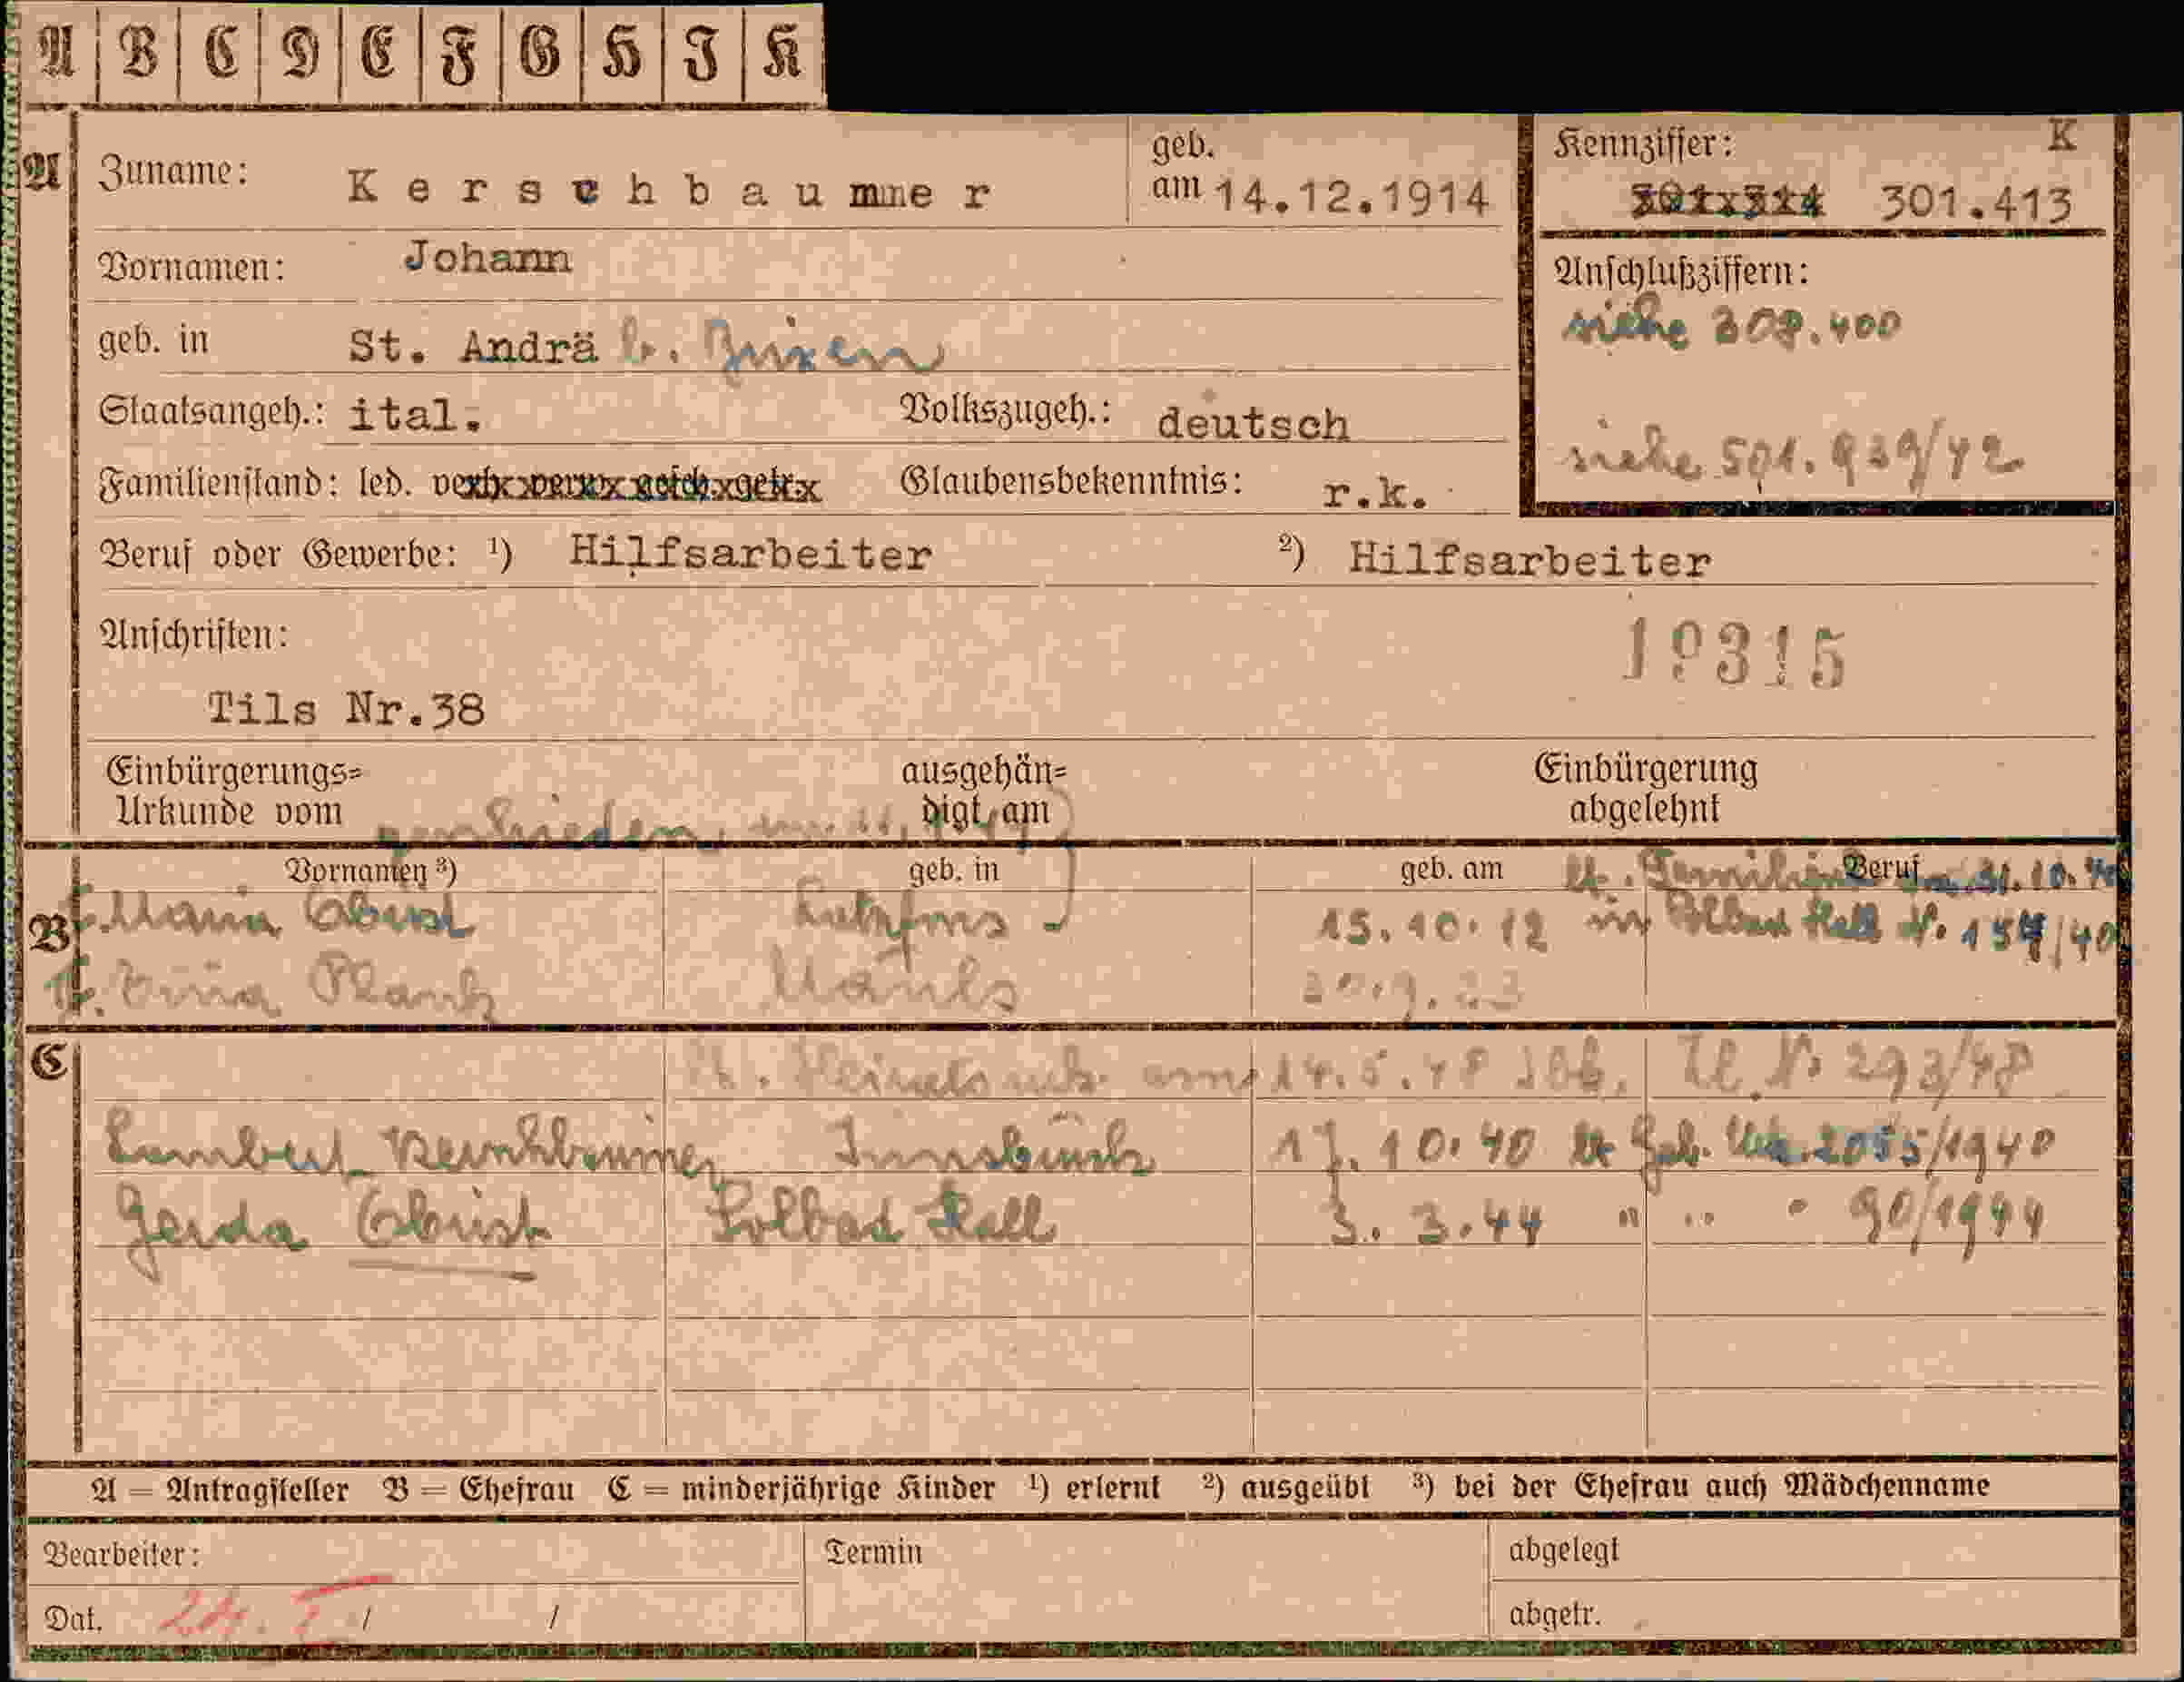 A B C D E F G H I K
A Zuname: Kerschbaumer geb. am 14.12.1914 Kennziffer: K
301.413
Vornamen: Johann
Anschlußziffern:
siehe 308.400
geb. in St. Andrä b. Brixen
Staatsangeh.: ital. Volkszugeh.: deutsch
siehe 501.939/42
Familienstand: led. verh. verw. gesch. getr. Glaubensbekenntnis: r.k.
Beruf oder Gewerbe: ¹) Hilfsarbeiter ²) Hilfsarbeiter
Anschriften:
19315
Tils Nr.38
Einbürgerungs= ausgehän= Einbürgerung
Urkunde vom digt am abgelehnt
geschieden
Vornamen ³) geb. in geb. am Beruf
lt. 31.10.40
B Maria Obrist Latzfons 15.10.12 in Solbad Hall Nr. 154/40
Plank Mauls 30.9.23
C
lt. Heiratsurk. vom 14.5.48 Ibk. Zl. Nr. 293/48
Lambert Kerschbaumer Innsbruck 17.10.40 lt Geb. Urk. 2055/1940
Gerda Obrist Solbad Hall 3.3.44 " " " 90/1944
A = Antragsteller B = Ehefrau C = minderjährige Kinder ¹) erlernt ²) ausgeübt ³) bei der Ehefrau auch Mädchenname
Bearbeiter: Termin abgelegt
Dat. / / abgetr.